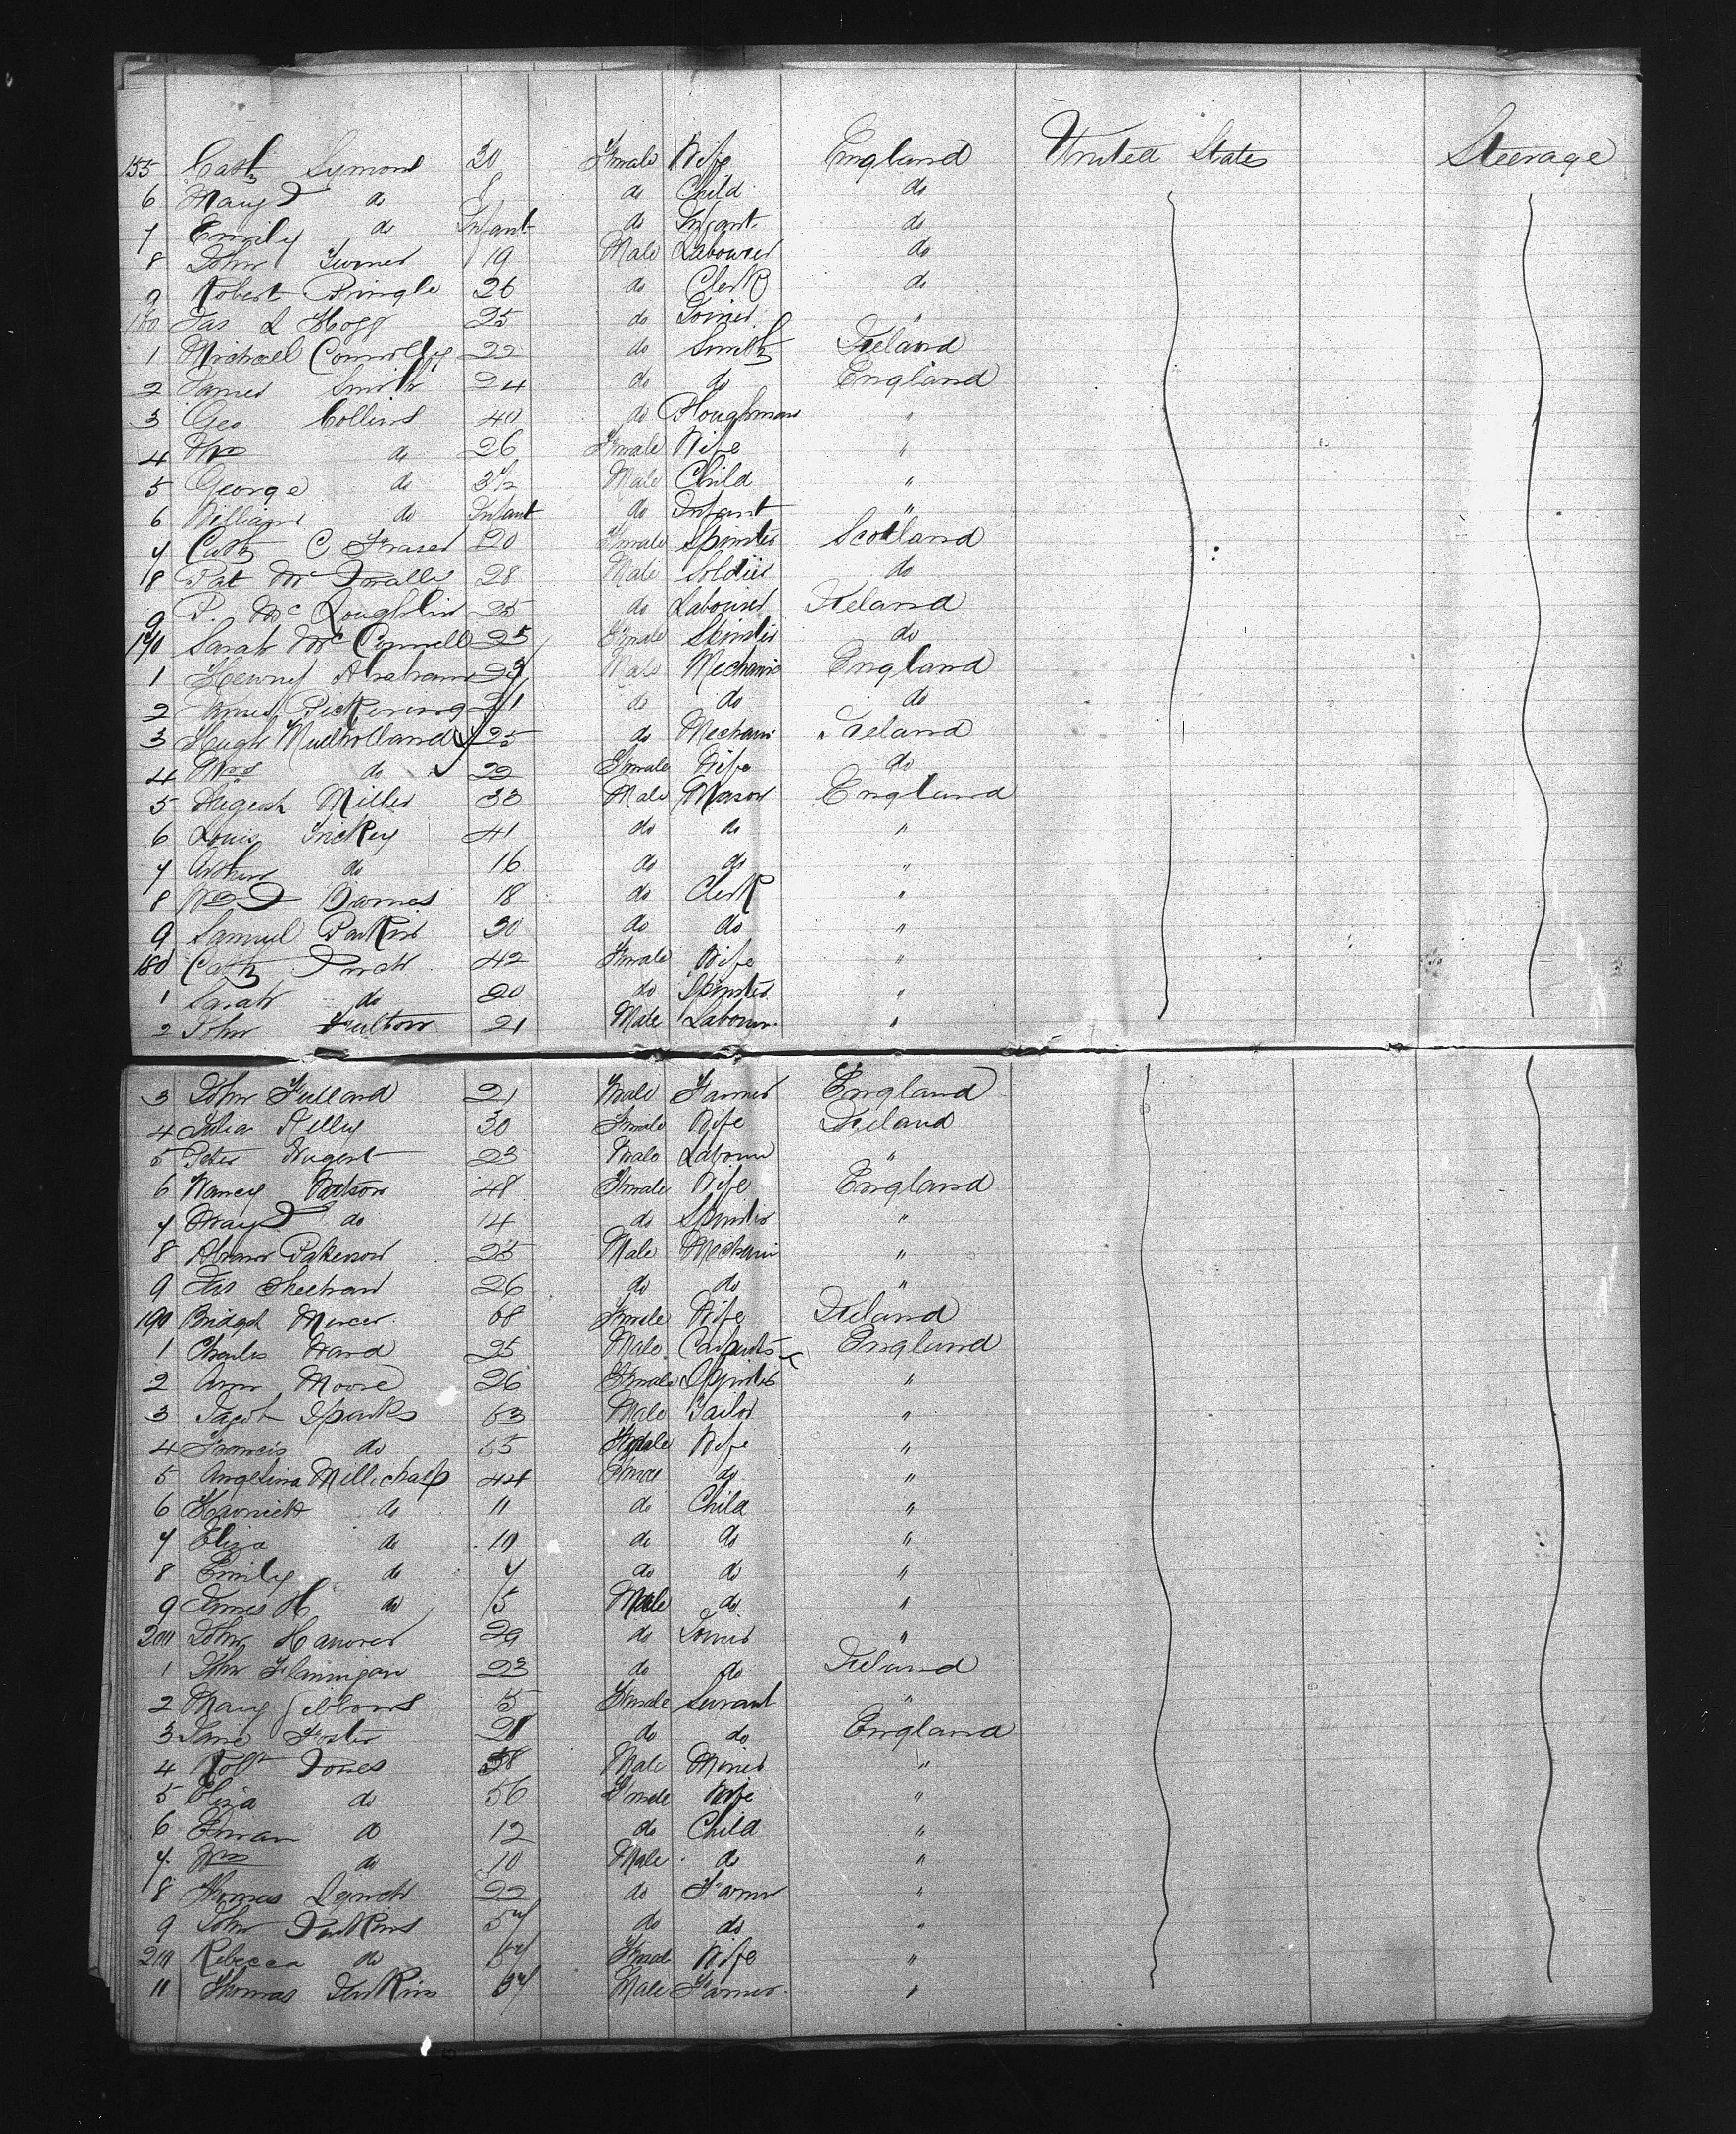 155 Cath Symons 30 Female Wife England United States Steerage
6 Mary J do 8 do Child do
7 Emily do Infant do Infant do
8 John Turner 19 Male Labourer do
9 Robert Pringle 26 do Clerk do
160 Jas L Hogg 25 do Joiner "
1 Michael Connolly 22 do Smith Ireland
2 James Smith 24 do do England
3 Geo Collins 40 do Ploughman "
4 Mrs do 26 Female Wife "
5 George do 3½ Male Child "
6 William do Infant do Infant "
7 Cath C Fraser 20 Female Spinster Scotland
8 Pat Mc 28 Male Soldier do
9 P. Mc Loughlin 25 do Labourer Ireland
170 Sarah Mc Connell 25 Female Spinster do
1 Henry Abraham 23 Male Mechanic England
2 James Pickering 21 do do do
3 Hugh Mulholland 25 do Mechani Ireland
4 Mrs do 22 Female Wife do
5 Miller 33 Male Mason England
6 Louis Trickey 41 do do "
7 Arthur do 16 do do "
8 Wm J Barnes 18 do Clerk "
9 Samuel Parkin 30 do do "
180 Cath 42 Female Wife "
1 Sarah do 20 do Spinster "
2 John Fulton 21 Male Labourer "
3 John Fullard 21 Male Farmer England
4 Julia Kelly 30 Female Wife Ireland
5 Peter Nugent 23 Male Labourer "
6 Nancy Watson 48 Female Wife England
7 Mary J do 14 do Spinster "
8 Abram 25 Male Mechani "
9 Jas Sheehan 26 do do "
190 Bridget Mercer 68 Female Wife Ireland
1 Charles Ward 25 Male Carpenter England
2 Ann Moore 26 Female Spinster "
3 Jacob Sparks 63 Male Tailor "
4 Francis do 55 Female Wife "
5 Angelina Millichap 44 Female do "
6 do 11 do Child "
7 Eliza do 10 do do "
8 Emily do 7 do do "
9 James H do 5 Male do "
200 John Hanover 29 do Joiner "
1 Jhn Flannigan 23 do do Ireland
2 Mary Gibbons 15 Female Servant "
3 Jane Foster 21 do do England
4 Robt Jones 58 Male Miner "
5 Eliza do 56 Female Wife "
6 do 12 do Child "
7 Wm do 10 Male do "
8 Thomas Lynch 22 do Farmer "
9 John Parkins 57 do do "
210 Rebecca do 57 Female Wife "
11 Thomas 37 Male Farmer "